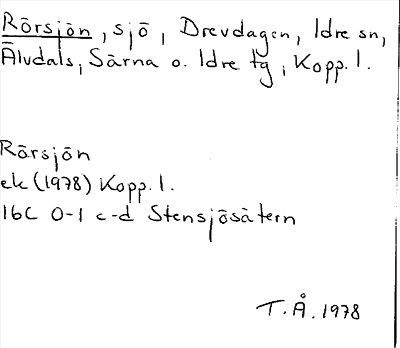 Rörsjön, sjö, Drevdagen, Idre sn,
Älvdals, Särna o. Idre tg, Kopp. l.
Rörsjön
ek (1978) Kopp. l.
16C 0-1 c-d Stensjösätern
T.Å. 1978